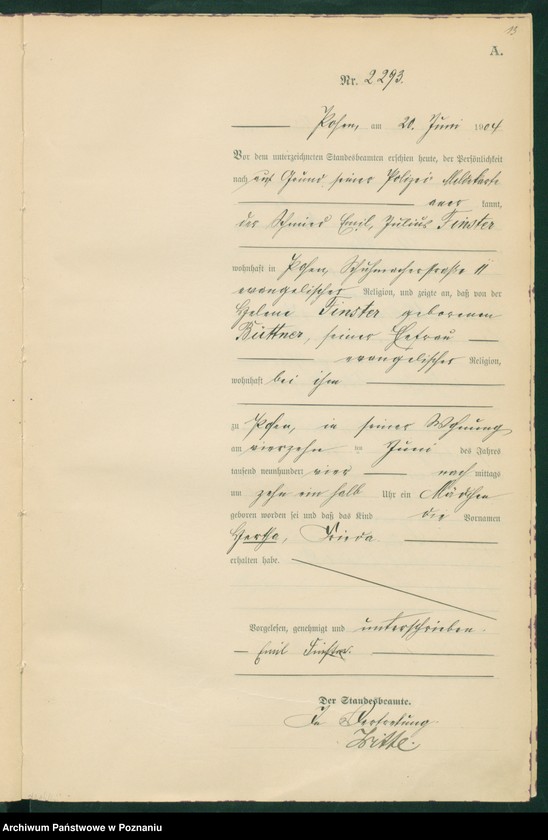 13
A.
Nr. 2293.
Posen, am 20. Juni 1904
Vor dem unterzeichneten Standesbeamten erschien heute, der Persönlichkeit
nach auf Grund seiner Polizei Meldekarte
aner kannt,
der Schmied Emil, Julius Finster
wohnhaft in Posen, Schuhmacherstraße 11
evangelischer Religion, und zeigte an, daß von der
Helene Finster geborenen
Büttner, seiner Ehefrau
evangelischer Religion,
wohnhaft bei ihm
zu Posen, in seiner Wohnung
am vierzehn ten Juni des Jahres
tausend neunhundert vier nach mittags
um zehn ein halb Uhr ein Mädchen
geboren worden sei und daß das Kind die Vornamen
Hertha, Frieda
erhalten habe.
Vorgelesen, genehmigt und unterschrieben.
Emil Finster.
Der Standesbeamte.
In Vertretung
Witte.
Archiwum Państwowe w Poznaniu